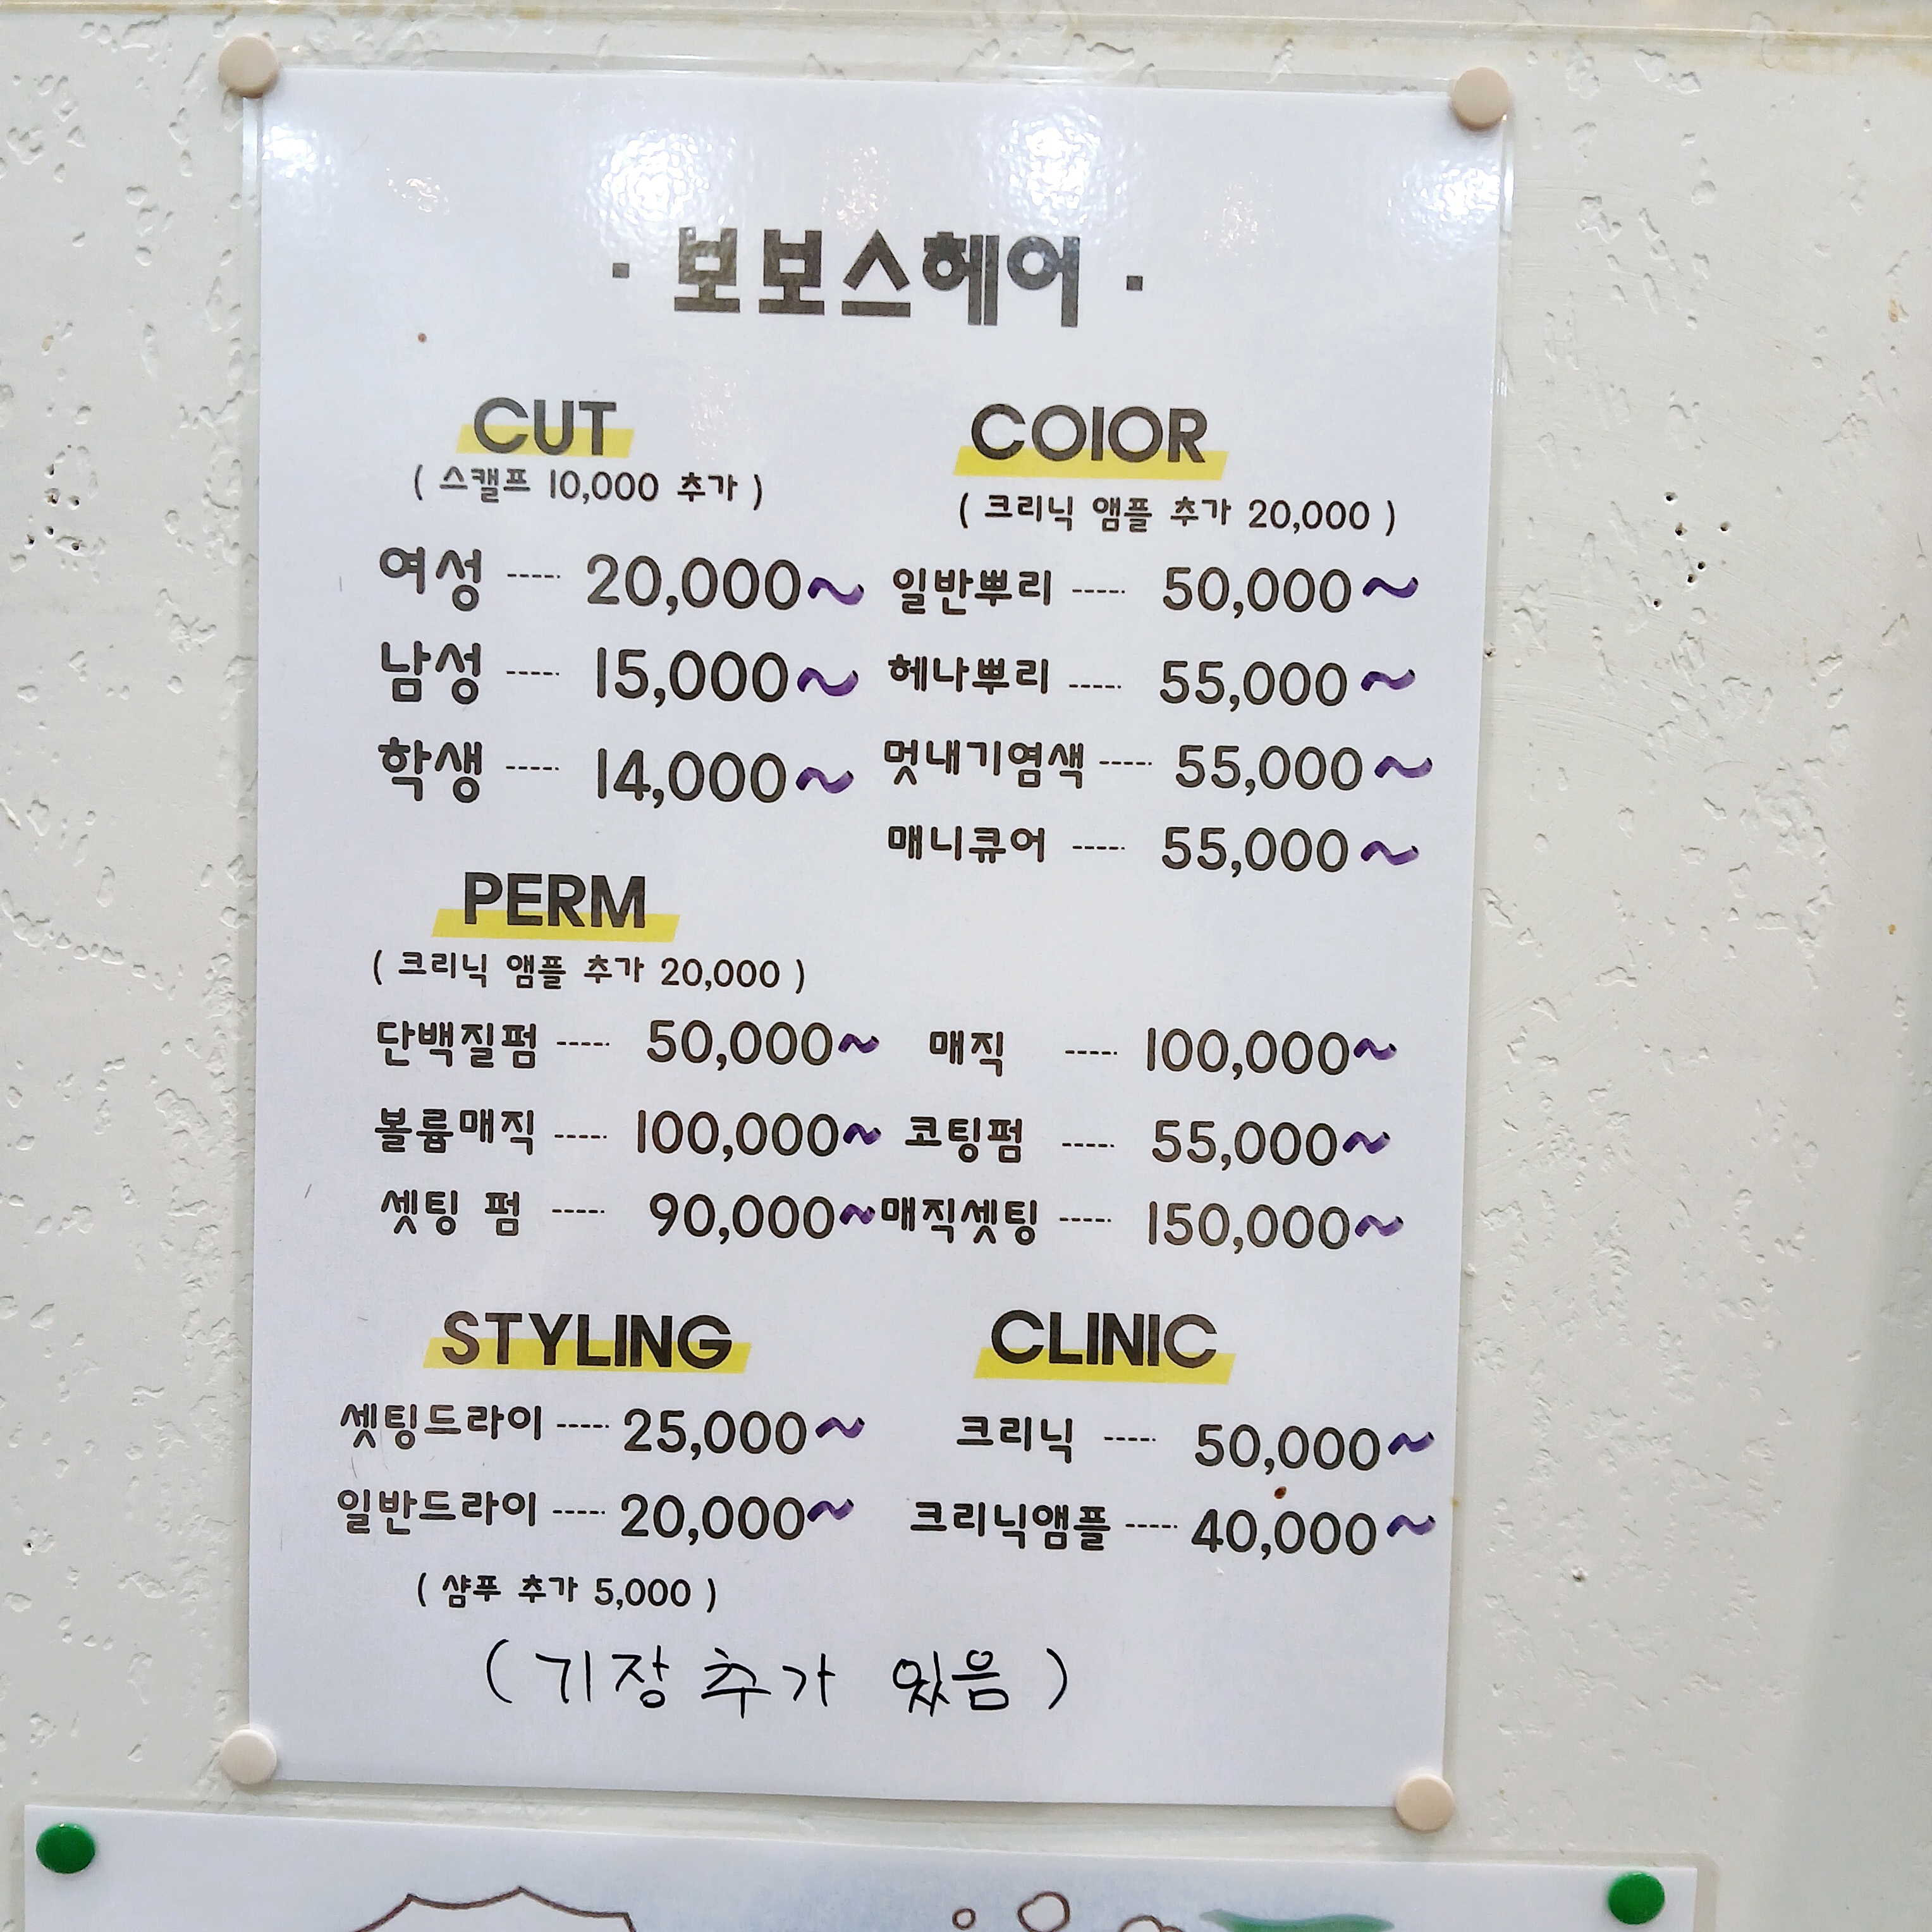 · 보보스헤어 ·
CUT
( 스캘프 10,000 추가 )
여성 ----- 20,000~
남성 ----- 15,000~
학생 ----- 14,000~
COlOR
( 크리닉 앰플 추가 20,000 )
일반뿌리 ----- 50,000~
헤나뿌리 ----- 55,000~
멋내기염색 ----- 55,000~
매니큐어 ----- 55,000~
PERM
( 크리닉 앰플 추가 20,000 )
단백질펌 ----- 50,000~
볼륨매직 ----- 100,000~
셋팅 펌 ----- 90,000~
매직 ----- 100,000~
코팅펌 ----- 55,000~
매직셋팅 ----- 150,000~
STYLING
셋팅드라이 ----- 25,000~
일반드라이 ----- 20,000~
( 샴푸 추가 5,000 )
CLINIC
크리닉 ----- 50,000~
크리닉앰플 ----- 40,000~
( 기장 추가 있음 )